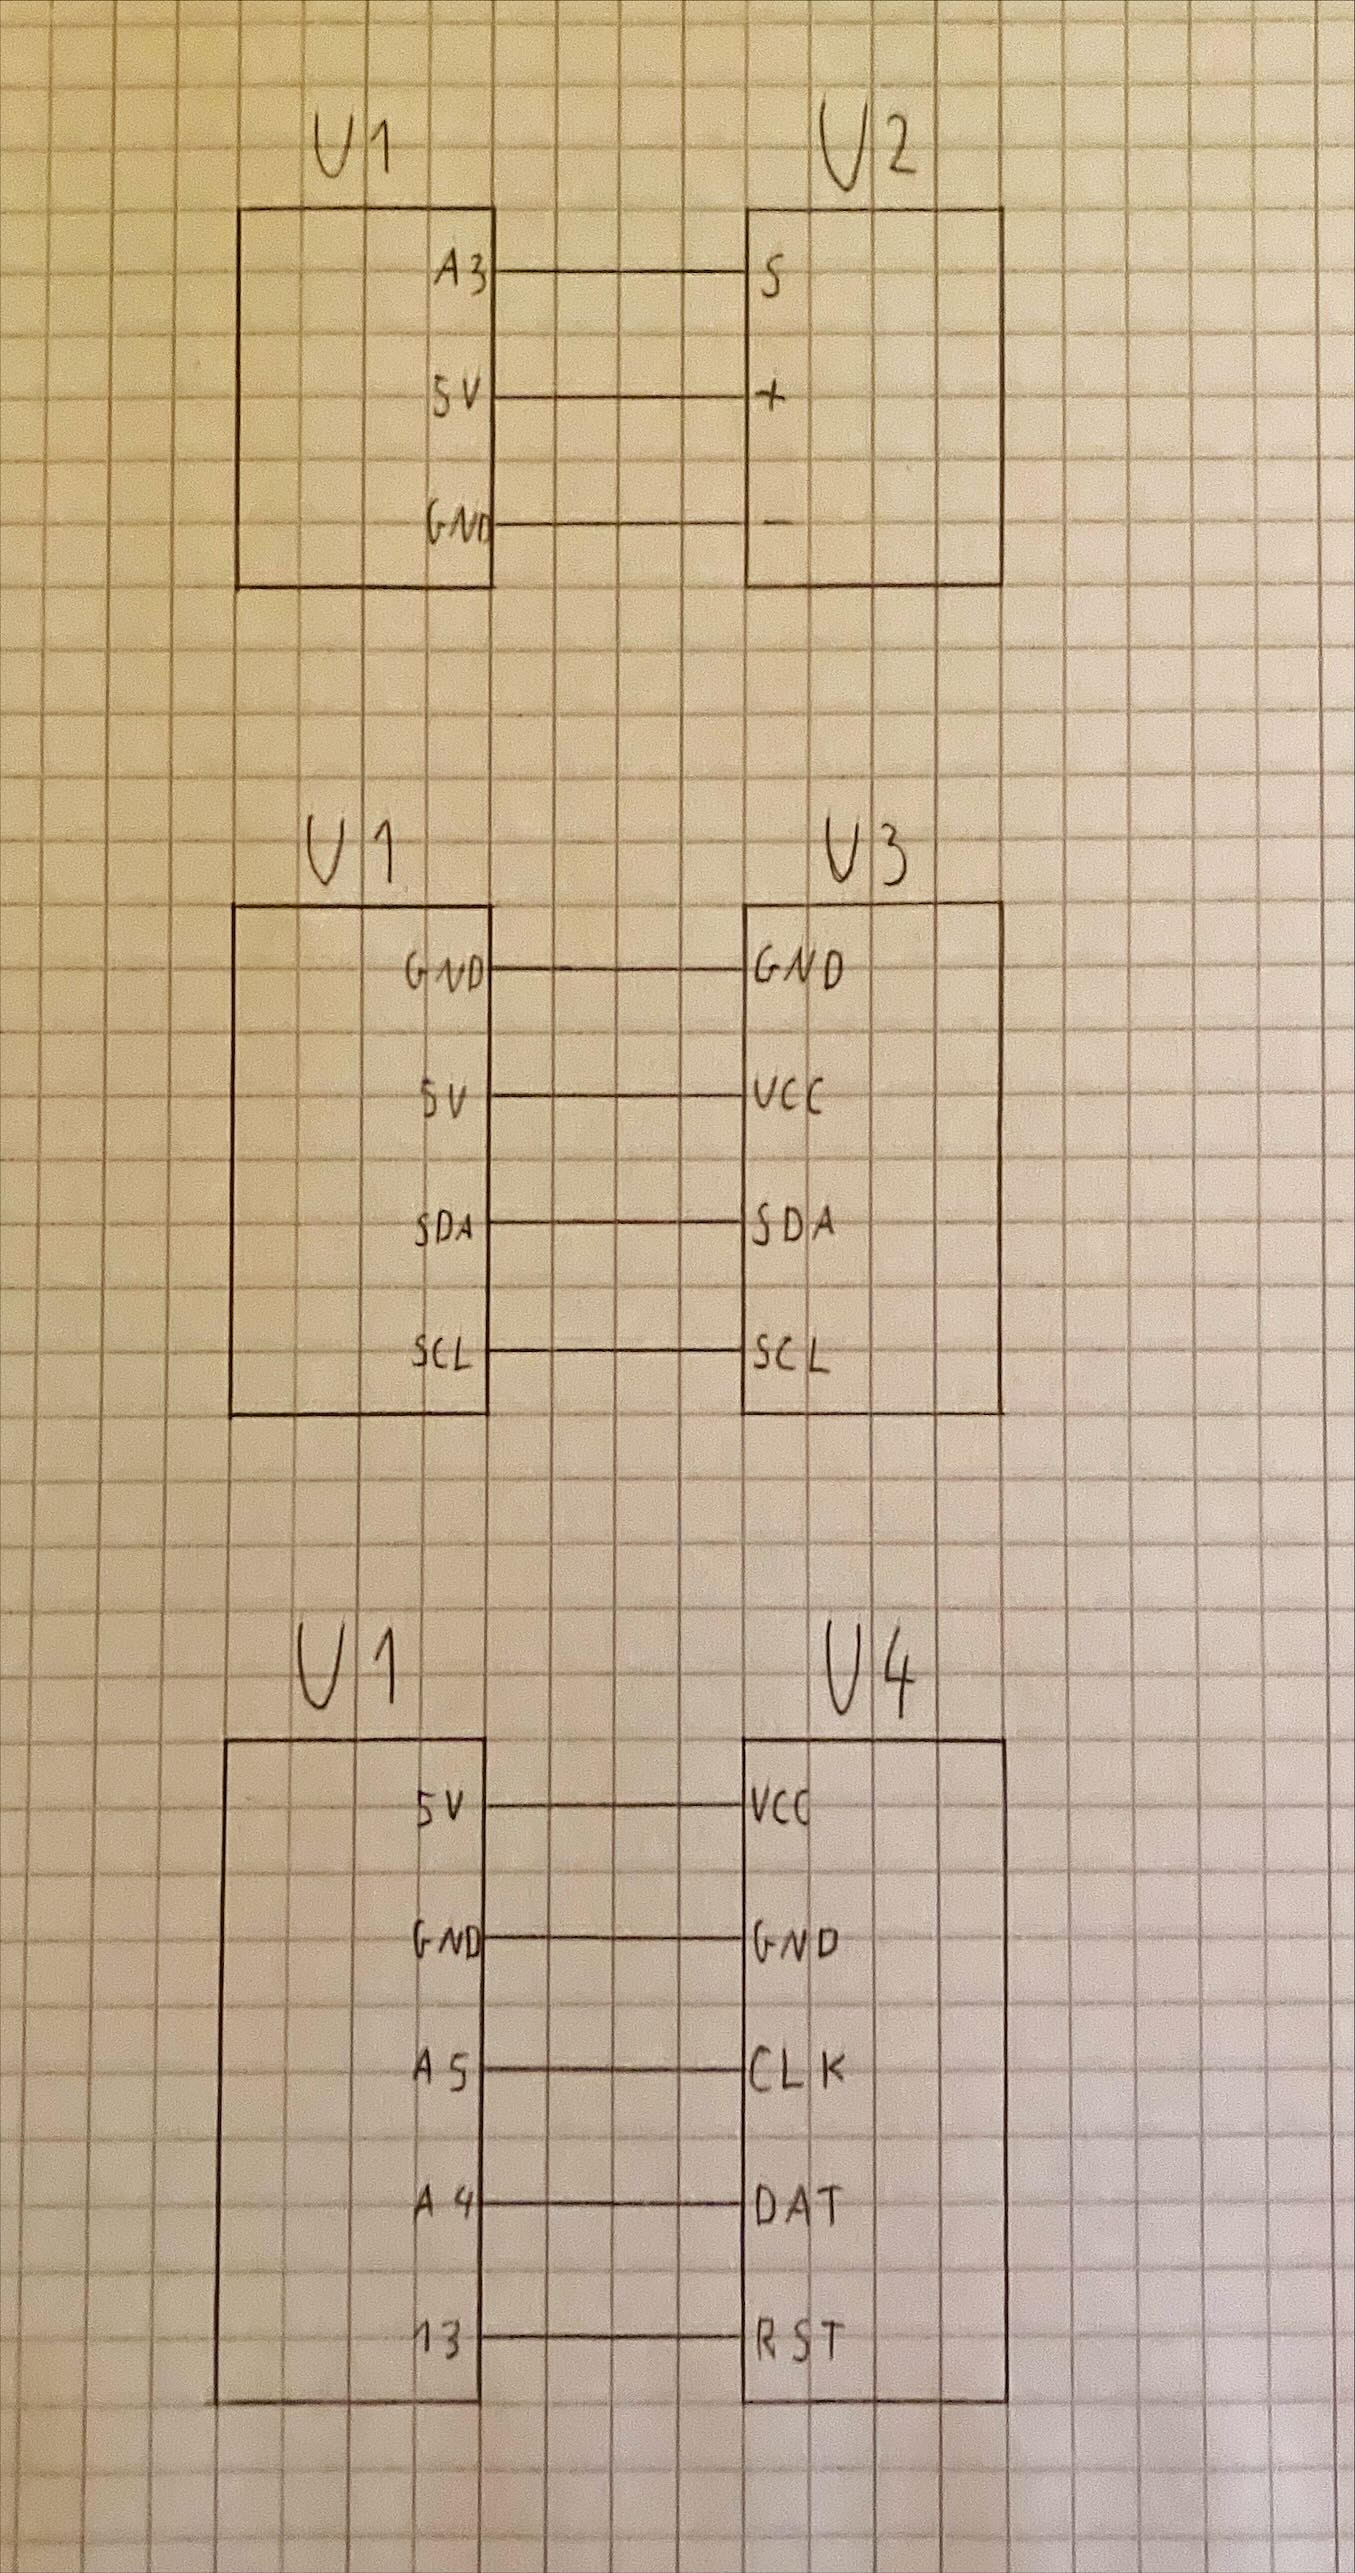 U1 U2
A3 S
5V +
GND −
U1 U3
GND GND
5V VCC
SDA SDA
SCL SCL
U1 U4
5V VCC
GND GND
A5 CLK
A4 DAT
13 RST